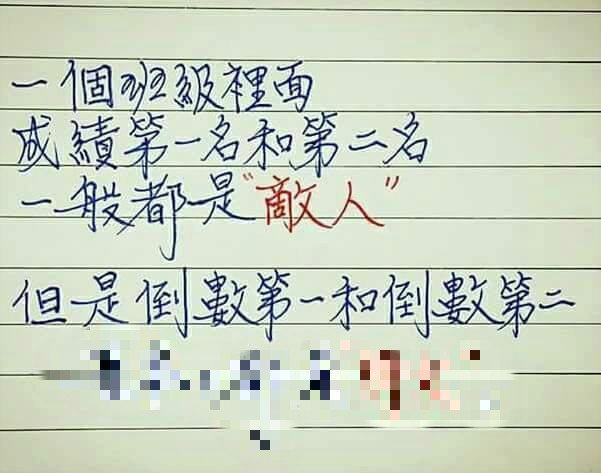 一個班級裡面
成績第一名和第二名
一般都是"敵人"
但是倒數第一和倒數第二